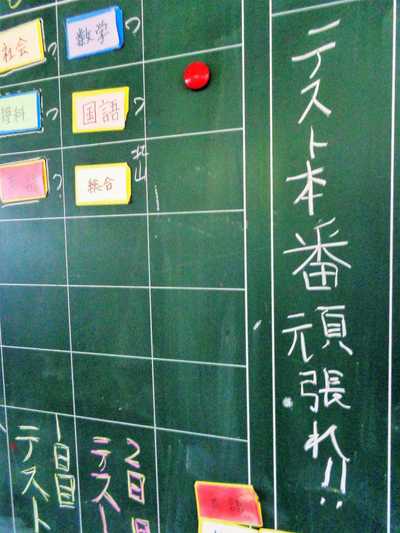 テスト本番頑張れ!!
数学
国語
北山
総合
社会
理科
2日目
テスト
1日目
テスト